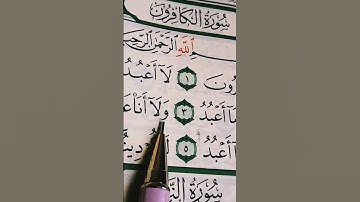 سُورَةُ الْكَافِرُونَ
اللَّهِ الرَّحْمَٰنِ الرَّحِي
رُونَ ١ لَآ أَعْبُدُ
مَآ أَعْبُدُ ٣ وَلَآ أَنَا۠ عَا
أَعْبُدُ ٥ دِين
سُورَةُ